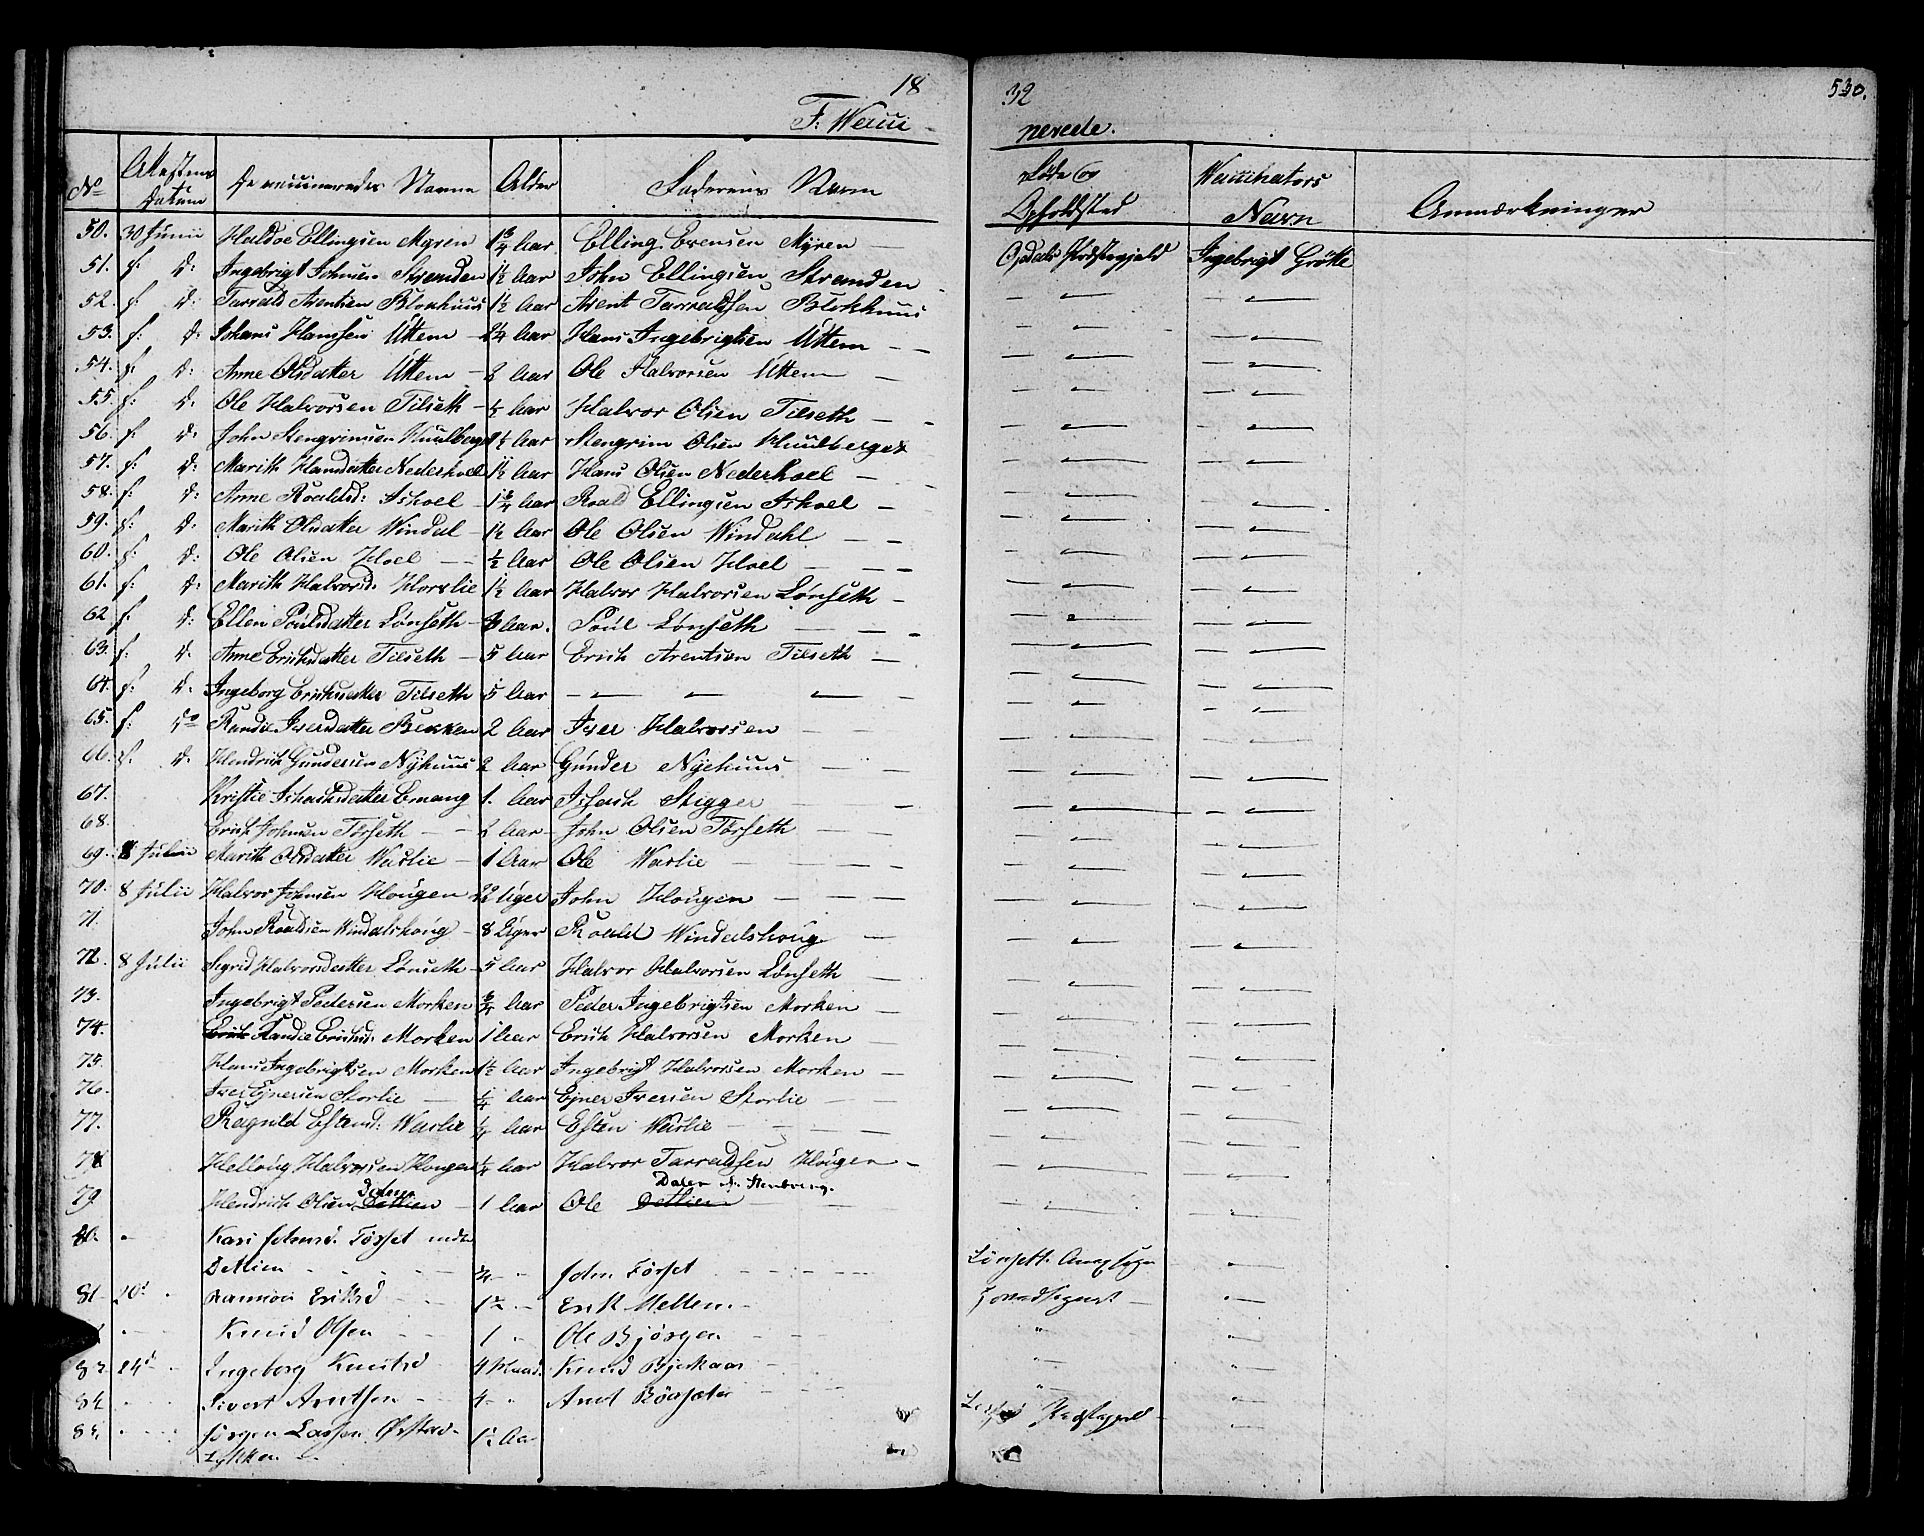 18 32 530.
F: Wacci- nerede.
No Attestens Datum De vaccineredes Navne Alder Faderens Navn Føde Og Opholdsted Waccinators Navn Anmærkninger
50. 30 Junii Haldoe Ellingsen Myren 1¾ Aar Elling Evensen Myren — Opdals Præstegjeld Ingebrigt Grötte
51. f: d: Ingebrigt Johnsen Stranden 1½ Aar John Ellingsen Stranden — — —
52. f: d: Tarrald Arentsen Blokhuus 1½ Aar Arent Tarraldsen Blokhuus — —
53. f: d: Johans Hanssen Uttem — ¼ Aar Hans Ingebrigtsen Uttem — —
54. f: d: Anne Olsdatter Uttem — 2 Aar Ole Halvorsen Uttem — —
55. f: d: Ole Halvorsen Tilseth — ½ Aar Halvor Olsen Tilseth — —
56. f: d: John Stengrimsen Huulberget ½ Aar Stengrim Olsen Huulberget — —
57. f: d: Marith Hansdatter Nederhoel 1½ Aar Hans Olsen Nederhoel — —
58. f: d: Anne Roaldsd: Ishoel — 1¾ Aar Roald Ellingsen Ishoel — —
59. f: d: Marith Olsdatter Windal — 1½ Aar Ole Olsen Windahl — —
60. f: d: Ole Olsen Hoel — ½ Aar Ole Olsen Hoel — —
61. f: d: Marith Halvorsd: Horslie 1½ Aar Halvor Halvorsen Lønseth — —
62 f: d: Ellen Poulsdatter Lønseth — Aar. Poul Lønseth — —
63. f: d. Anne Erichsdatter Tilseth — 5 Aar Erich Arentsen Tilseth — —
64. f: d. Ingeborg Erichsdatter Tilseth 5 Aar — — — —
65. f: do Randie Iversdatter Bekken 2 Aar Iver Halvorsen — —
66. f. d. Hendrich Gundersen Nyhuus 2 Aar Gunder Nyehuus — —
67. Kristie Ishachsdatter Emang 1. Aar Ishach Skigger — —
68. Erich Johnsen Tørseth — 2 Aar John Olsen Tørseth — —
69. 8 Julii Marith Olsdatter Warlie — 1 Aar Ole Warlie — —
70. 8 Julii Halvor Johnsen Hougen — 22 Uger John Hougen — —
71. John Roaldsen Windalshoug — 8 Uger Roald Windalshoug — —
72. 8 Julii Sigrid Halvorsdatter Lønseth — 5 Aar Halvor Halvorsen Lønseth — —
73. Ingebrigt Pedersen Morken ¾ Aar Peder Ingebrigtsen Morken — —
74. Erich Randie Erichsd: Morken 1 Aar Erich Halvorsen Morken — —
75. Hans Ingebrigtsen Morken 1½ Aar Ingebrigt Halvorsen Morken — —
76. Iver Ejnersen Storlie — ¼ Aar Ejner Iversen Storlie — —
77. Ragnild Estensd: Warlie ¼ Aar Esten Warlie — —
78 Helloug Halvorsen Hougen ¼ Aar Halvor Tarraldsen Hougen — —
79. Hendrich Olsen Detlien — 1 Aar Ole Detlien — —
80. Kari Johnsd. Tørset
Detlien ¾ — John Tørset Lønsett Annex Sogn —
81 20d Ramnöi Eriksd 1½ — Erik Mellem —
Knud Olsen 1 — Ole Bjørgen " —
83 24d Ingeborg Knutsd 4 Maand. Knud Bjerkaas " —
84. Sivert Arntsen — 4 — Arnt " —
85. Jørgen Larsen 1½ Aar
Lykken